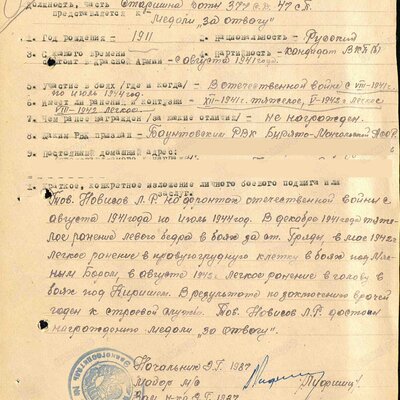 должность, часть Старшина роты 377 с.п. 47 с.п.
представляется к
медали "За отвагу"
1. Год рождения - 1911 2. национальность - Русский
3. С какого времени 4. партийность - кандидат ВКП/б/
состоит в Красной Армии - с августа 1941 года.
5. Участие в боях /где и когда/ - В отечественной войне с VIII-1941г.
по июль 1944 год.
6. Имеет ли ранения и контузии - XII-1941г. тяжелое, V-1942г. легкое
VIII-1942 легкое.
7. Чем ранее награжден /за какие отличия/ - Не награжден.
8. Каким РВК призван - Баунтовским РВК Бурято-Монгольской АССР
9. Постоянный домашний адрес:
1. Краткое, конкретное изложение личного боевого подвига или
заслуг
Тов. Новисов Л.Р. на фронтах отечественной войны с
августа 1941 года по июль 1944 год. В декабре 1941 года тяже-
лое ранение левого бедра в боях за ст. Гряды, в мае 1942г.
легкое ранение в правую грудную клетку в боях под Мяс-
ным Бором, в августе 1942г. легкое ранение в голову в
боях под Киришем. В результате по заключению врачей
годен к строевой службе. Тов. Новисов Л.Р. достоин
награждению медали "за отвагу".
Начальник Э.Г. 1987
Майор м/с
Э.Г. 1987